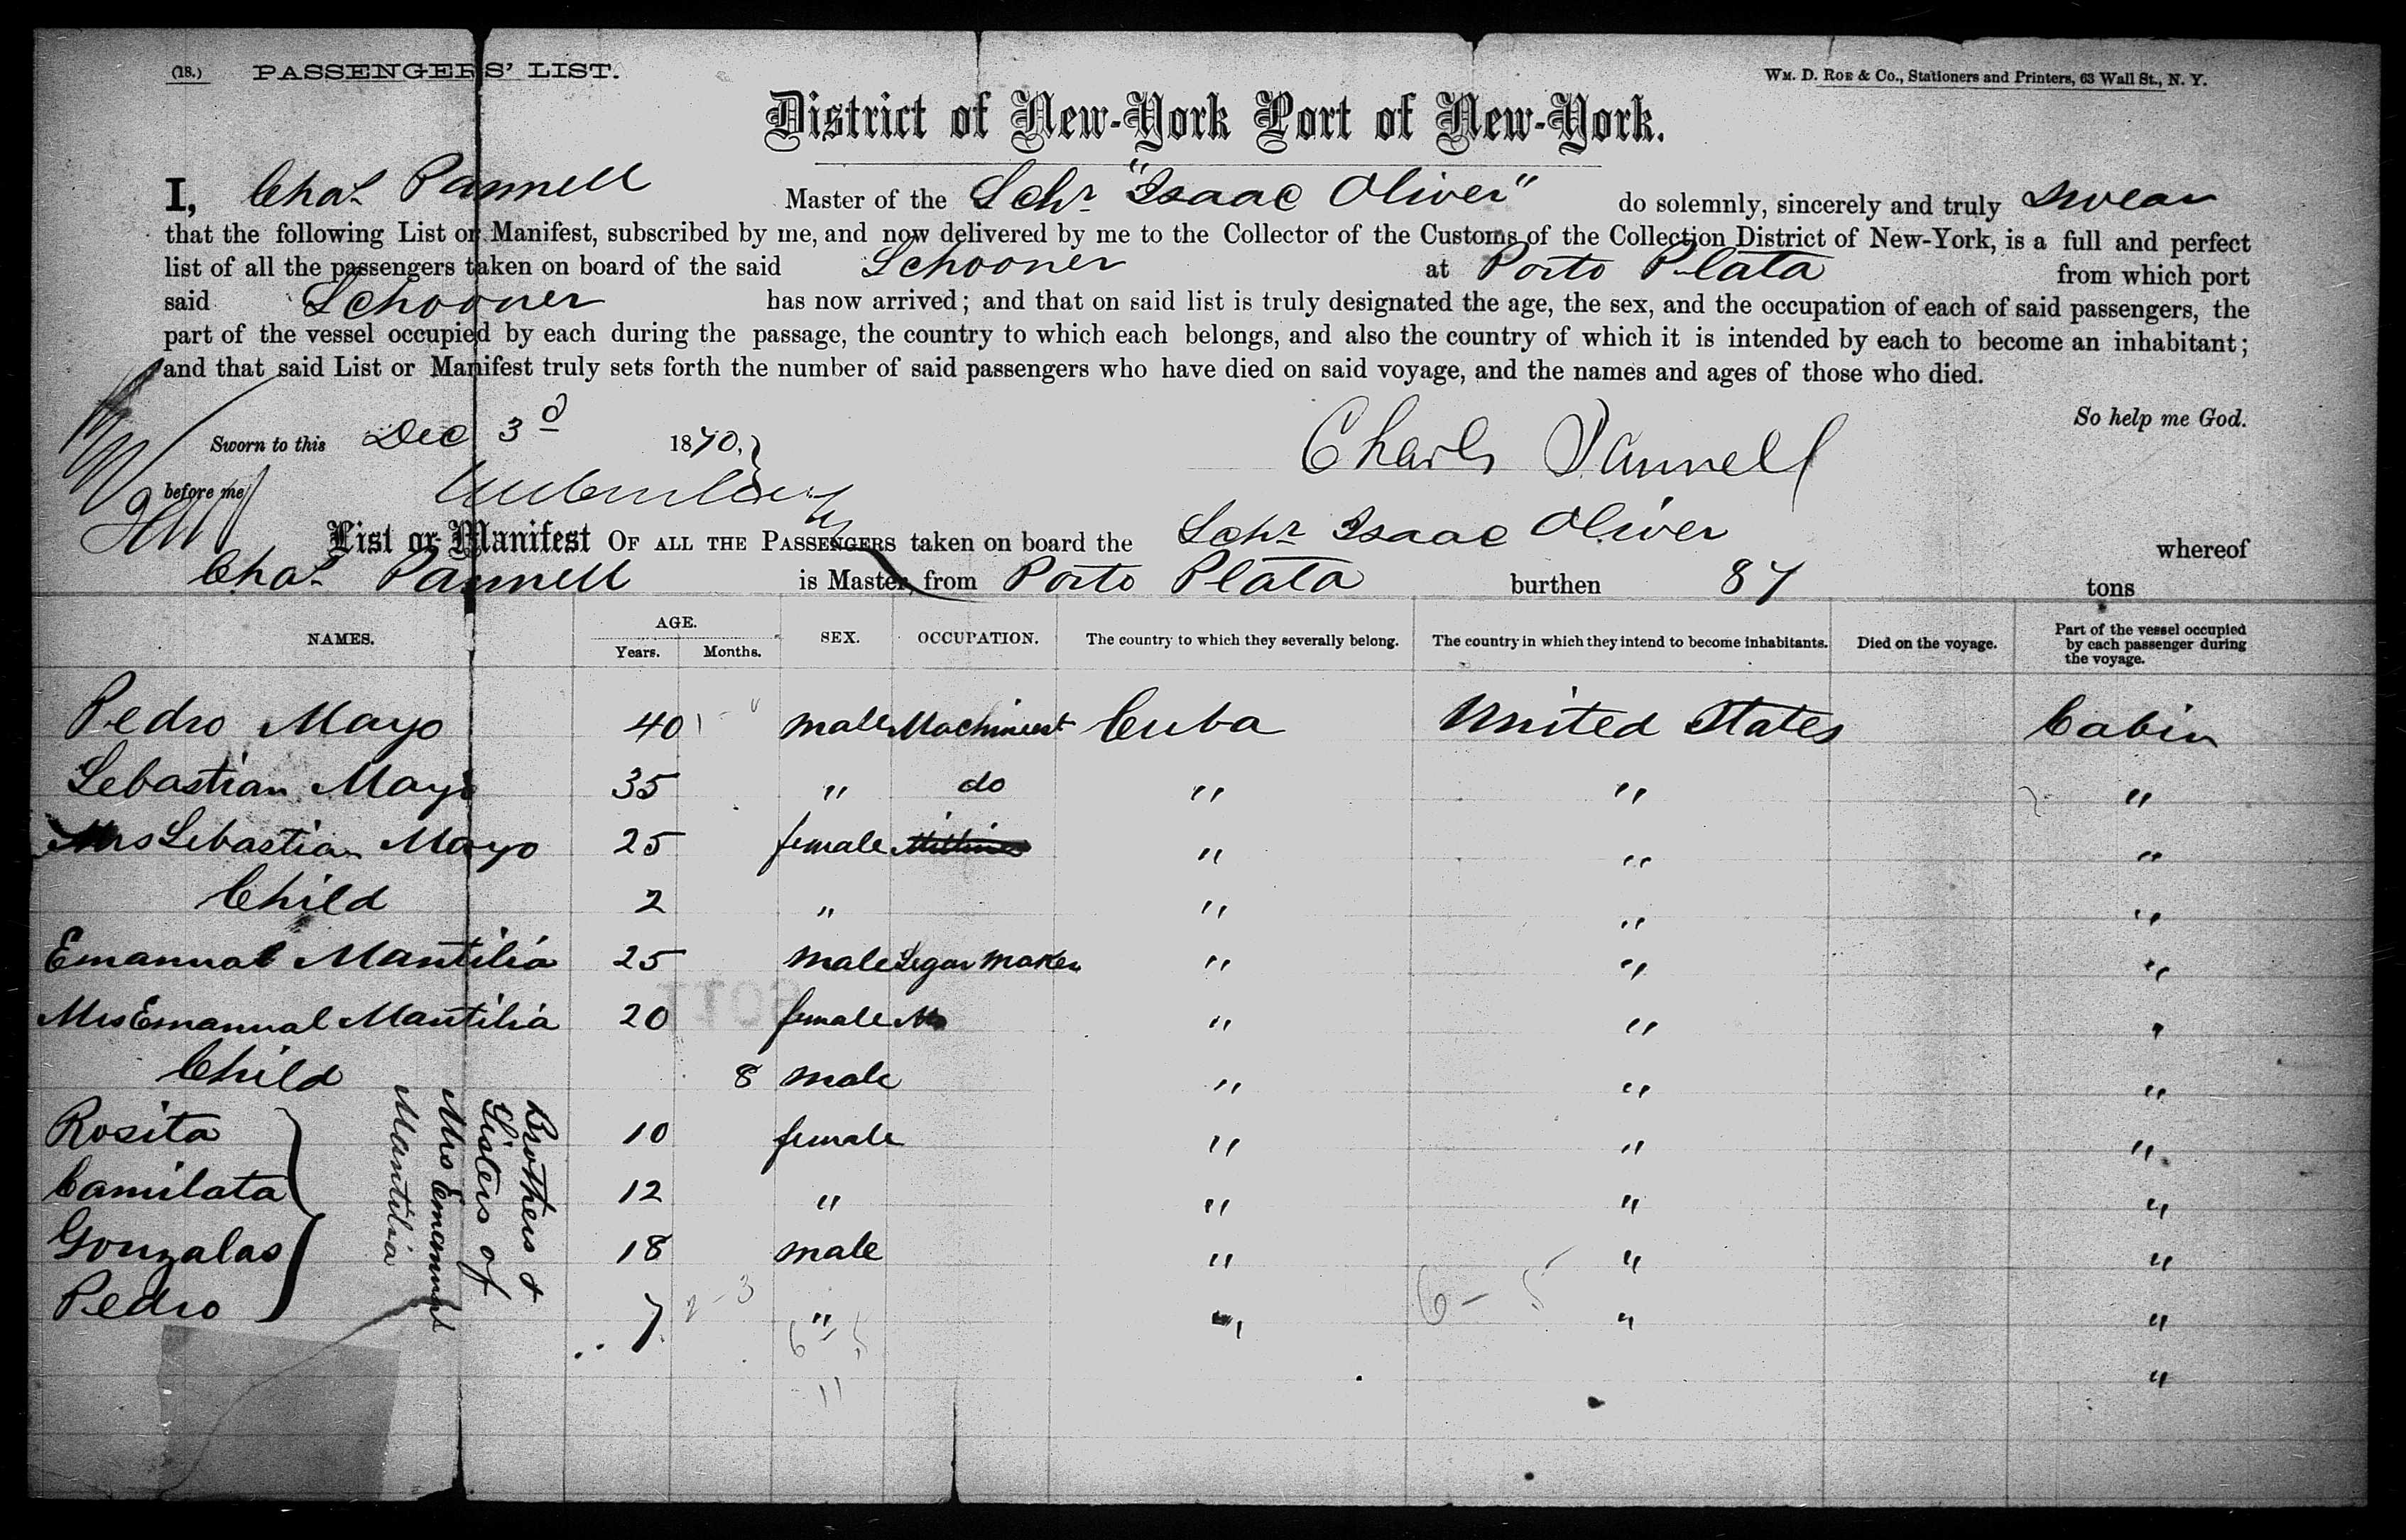 (18.) PASSENGERS' LIST.
WM. D. ROE & CO., Stationers and Printers, 63 Wall St., N. Y.
District of New-York Port of New-York.
I, Chas Pannell Master of the Schr "Isaac Oliver" do solemnly, sincerely and truly swear
that the following List or Manifest, subscribed by me, and now delivered by me to the Collector of the Customs of the Collection District of New-York, is a full and perfect
list of all the passengers taken on board of the said Schooner at Porto Plata from which port
said Schooner has now arrived; and that on said list is truly designated the age, the sex, and the occupation of each of said passengers, the
part of the vessel occupied by each during the passage, the country to which each belongs, and also the country of which it is intended by each to become an inhabitant;
and that said List or Manifest truly sets forth the number of said passengers who have died on said voyage, and the names and ages of those who died.
So help me God.
Sworn to this Dec 3d 1870,
Charls Pannell
before me
List or Manifest OF ALL THE PASSENGERS taken on board the Schr Isaac Oliver whereof
Chas Pannell is Master, from Porto Plata burthen 87 tons
NAMES. AGE. Years. Months. SEX. OCCUPATION. The country to which they severally belong. The country in which they intend to become inhabitants. Died on the voyage. Part of the vessel occupied by each passenger during the voyage.
Pedro Mayo 40 male Machineest Cuba United States Cabin
Sebastian Mayo 35 " do " " "
Mrs Sebastian Mayo 25 female " " "
Child 2 " " " "
Emanual Mantilia 25 male Segar maker " " "
Mrs Emanual Mantilia 20 female " " "
Child 8 male " " "
Rosita 10 female " " "
Camilata 12 " " " "
Gonzalas 18 male " " "
Pedro 7 " " " "
"
Brothers &
Sisters of
Mrs Emanual
Mantilia
2-3
6-5
11
6-5